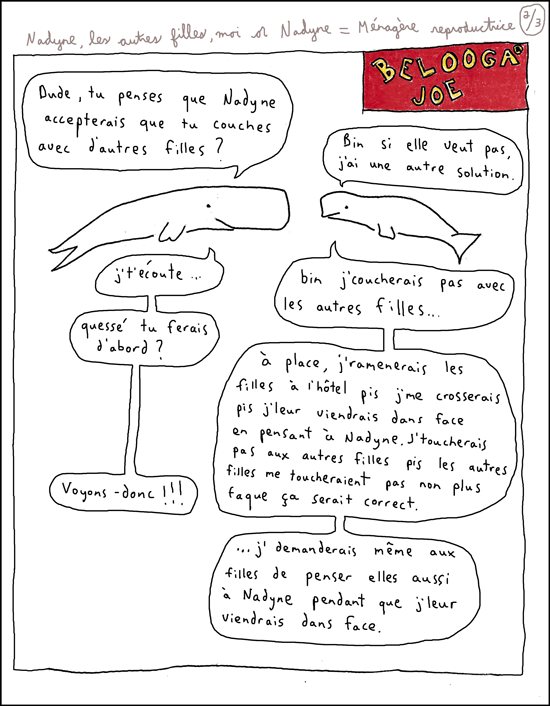 Nadyne, les autres filles, moi ou Nadyne = Ménagère reproductrice 2/3
BELOOGA
JOE
Dude, tu penses que Nadyne
accepterais que tu couches
avec d'autres filles ?
Bin si elle veut pas,
j'ai une autre solution.
j't'écoute ...
bin j'coucherais pas avec
les autres filles...
quessé tu ferais
d'abord ?
à place, j'ramenerais les
filles à l'hôtel pis j'me crosserais
pis j'leur viendrais dans face
en pensant à Nadyne. J'toucherais
pas aux autres filles pis les autres
filles me toucheraient pas non plus
faque ça serait correct.
Voyons-donc !!!
...j'demanderais même aux
filles de penser elles aussi
à Nadyne pendant que j'leur
viendrais dans face.